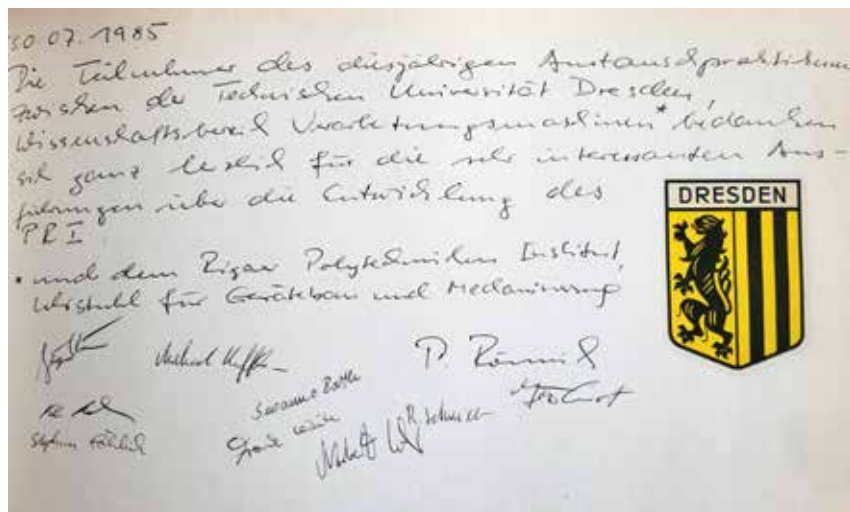 30.07.1985
Die Teilnehmer des diesjährigen Austauschpraktikums
zwischen der Technischen Universität Dresden,
Wissenschaftsbereich Verarbeitungsmaschinen* bedanken
sich ganz herzlich für die sehr interessanten Aus-
führungen über die Entwicklung des
PRI
* und dem Rigaer Polytechnischen Institut,
Lehrstuhl für Gerätebau und Mechanisierung
DRESDEN
Michael
P.
Susanne
Stephan
Norbert